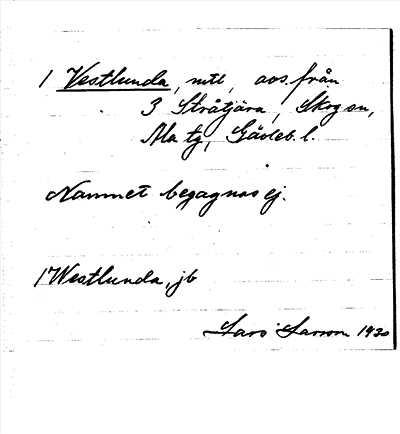 1 Vestlunda, mtl, avs. från
3 Stråtjära, Skog sn,
Ala tg, Gävleb. l.
Nammet begagnas ej.
1 Westlunda, jb
Lars Larsson 1930